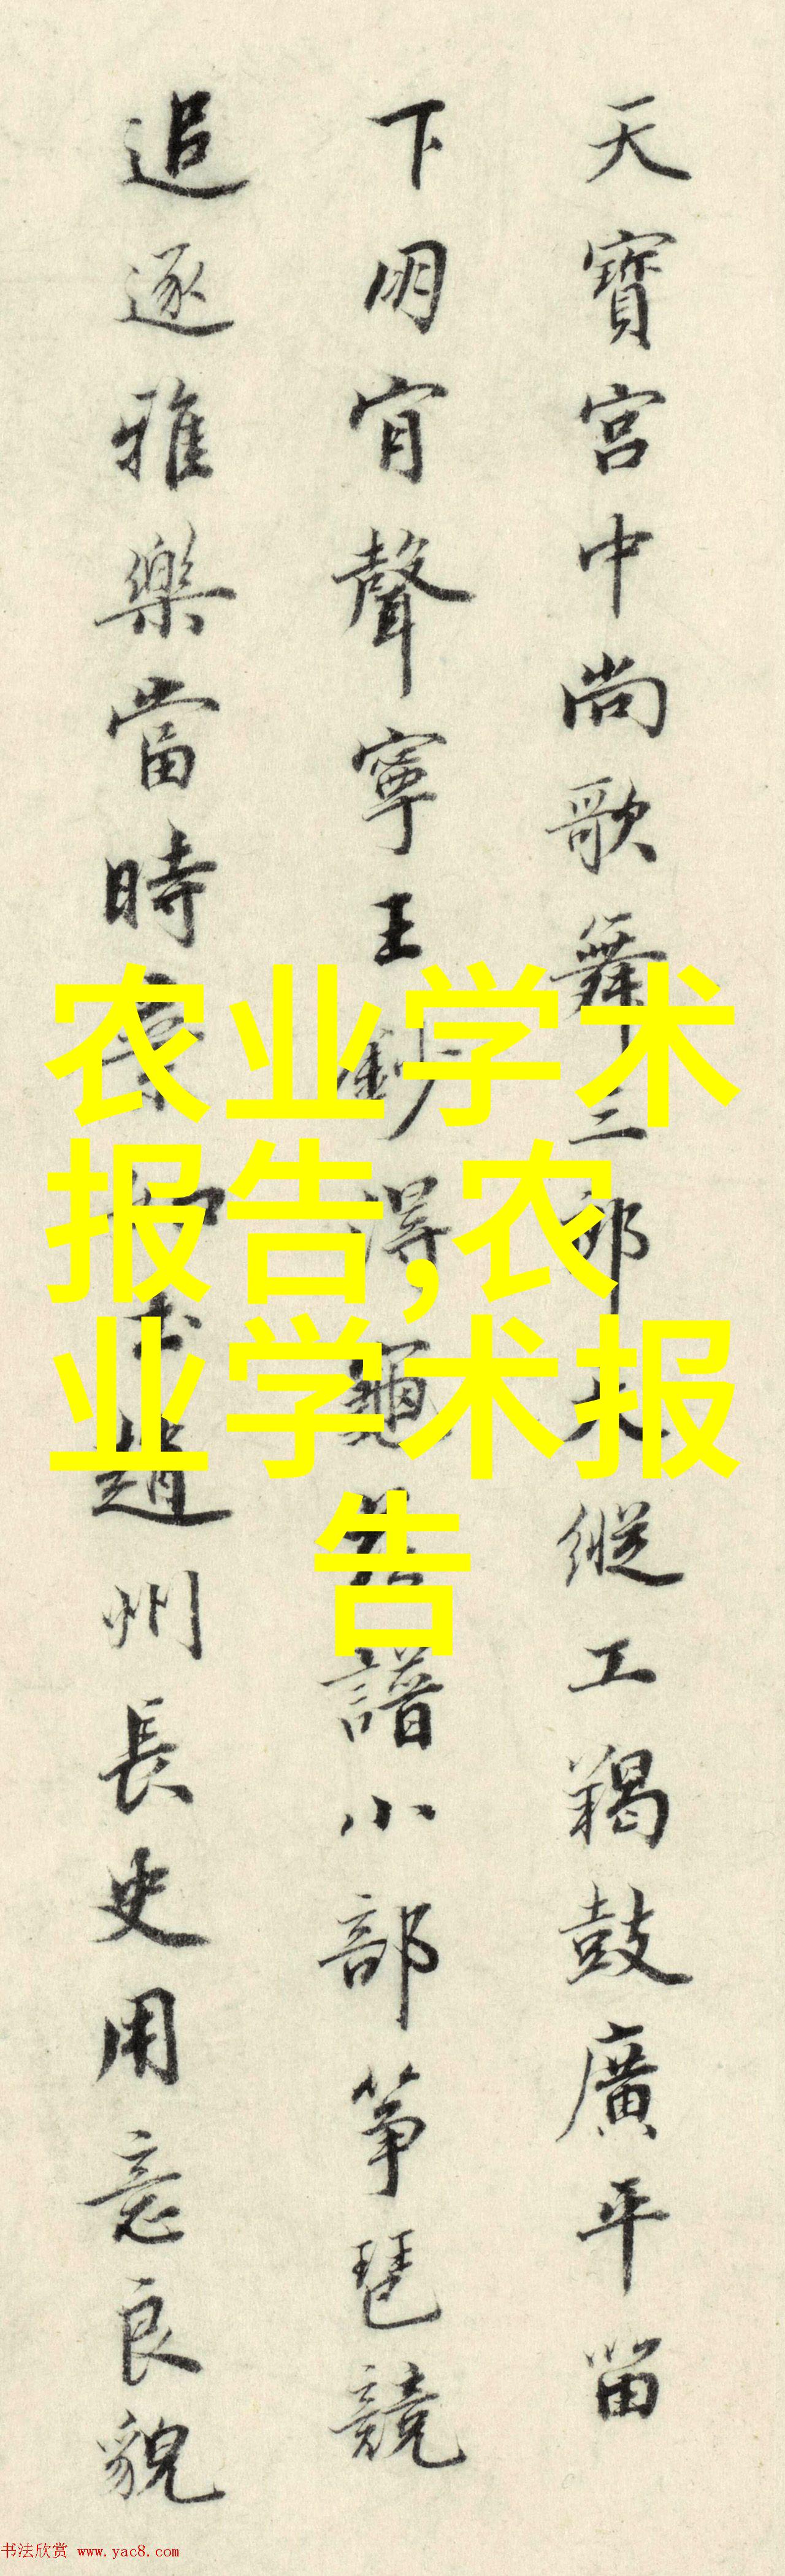 天寶宮中尚歌舞三郎天縱工羯鼓廣平留
下明宵聲寧王
得龜茲譜小部箏琶競
追逐雅樂當時
趙州長史用意良貌
农业学术
报告,农
业学术报
告
书法欣赏 www.yac8.com